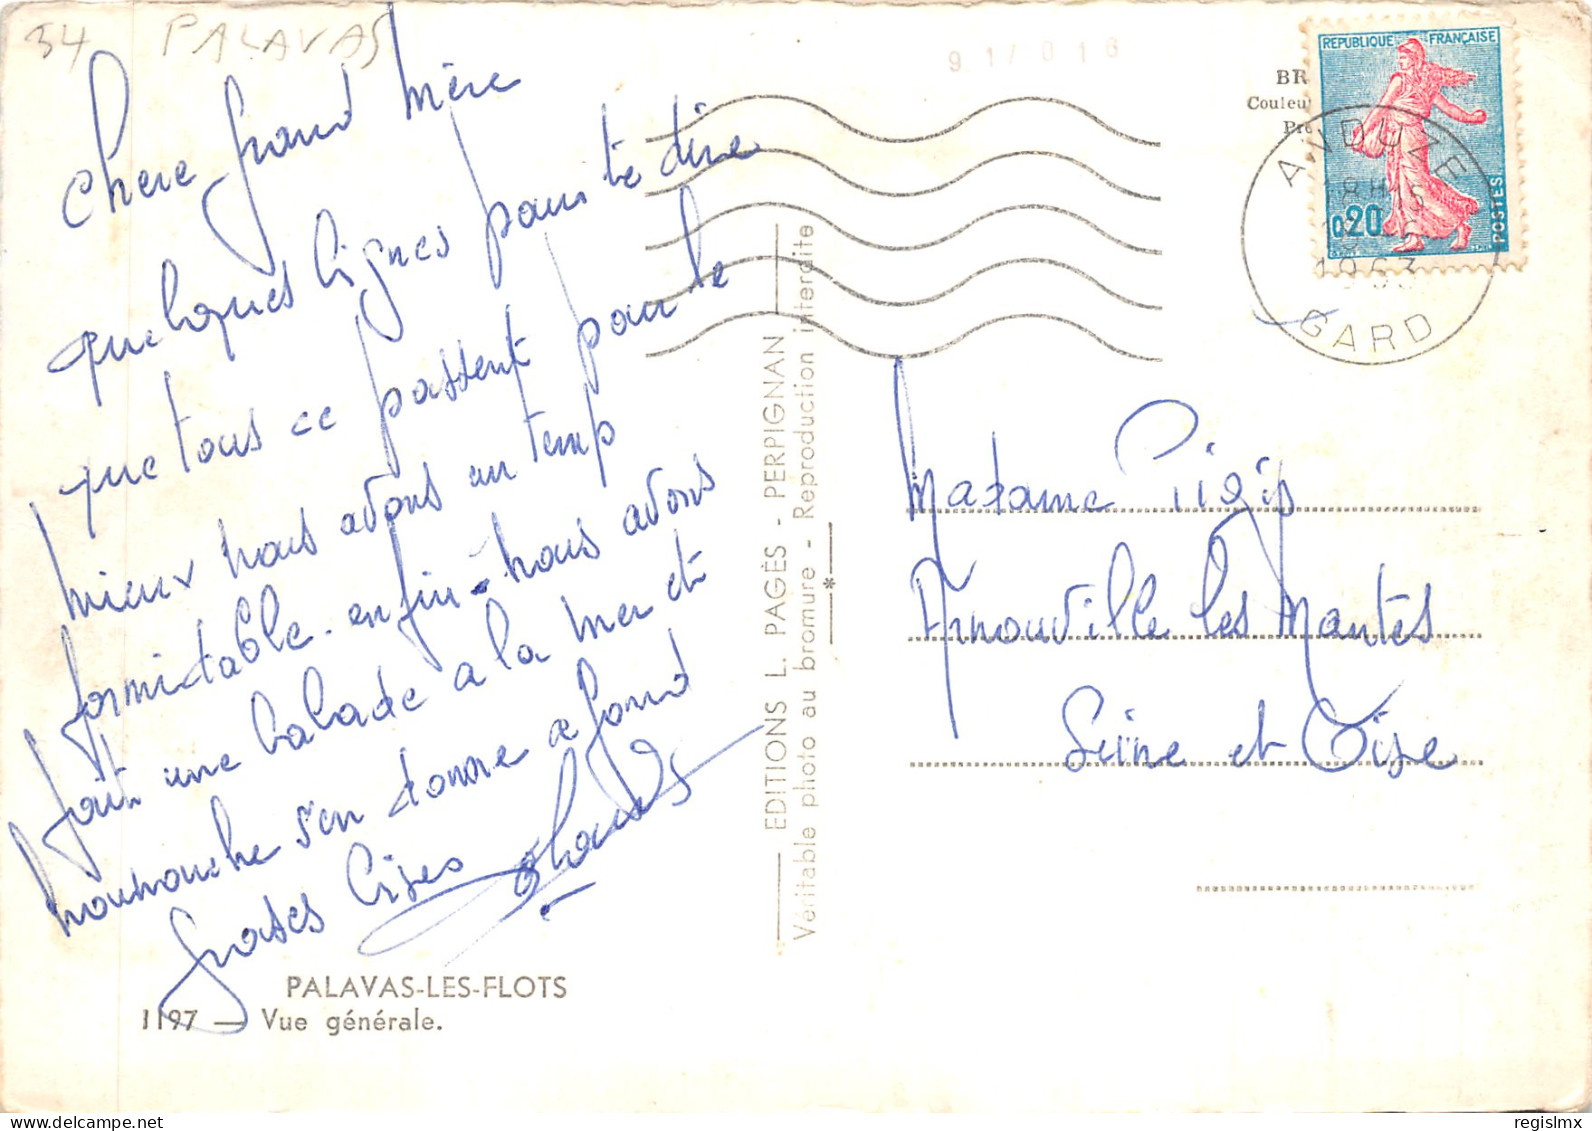 34 PALAVAS
Chere grand mère
quelques lignes pour te dire
que tous ce passent pour le
mieux nous avons un temp
formidable. enfin. nous avons
fait une balade a la mer et
nounouche s'en donne a fond
grosses bises
PALAVAS-LES-FLOTS
1197 — Vue générale.
EDITIONS L. PAGÈS - PERPIGNAN
Véritable photo au bromure - Reproduction interdite
91/016
BR
Couleu
Pr
REPUBLIQUE FRANÇAISE
0,20
POSTES
ANDUZE
18H15
1963
GARD
Madame
Arnouville les Mantes
Seine et Oise
regislmx